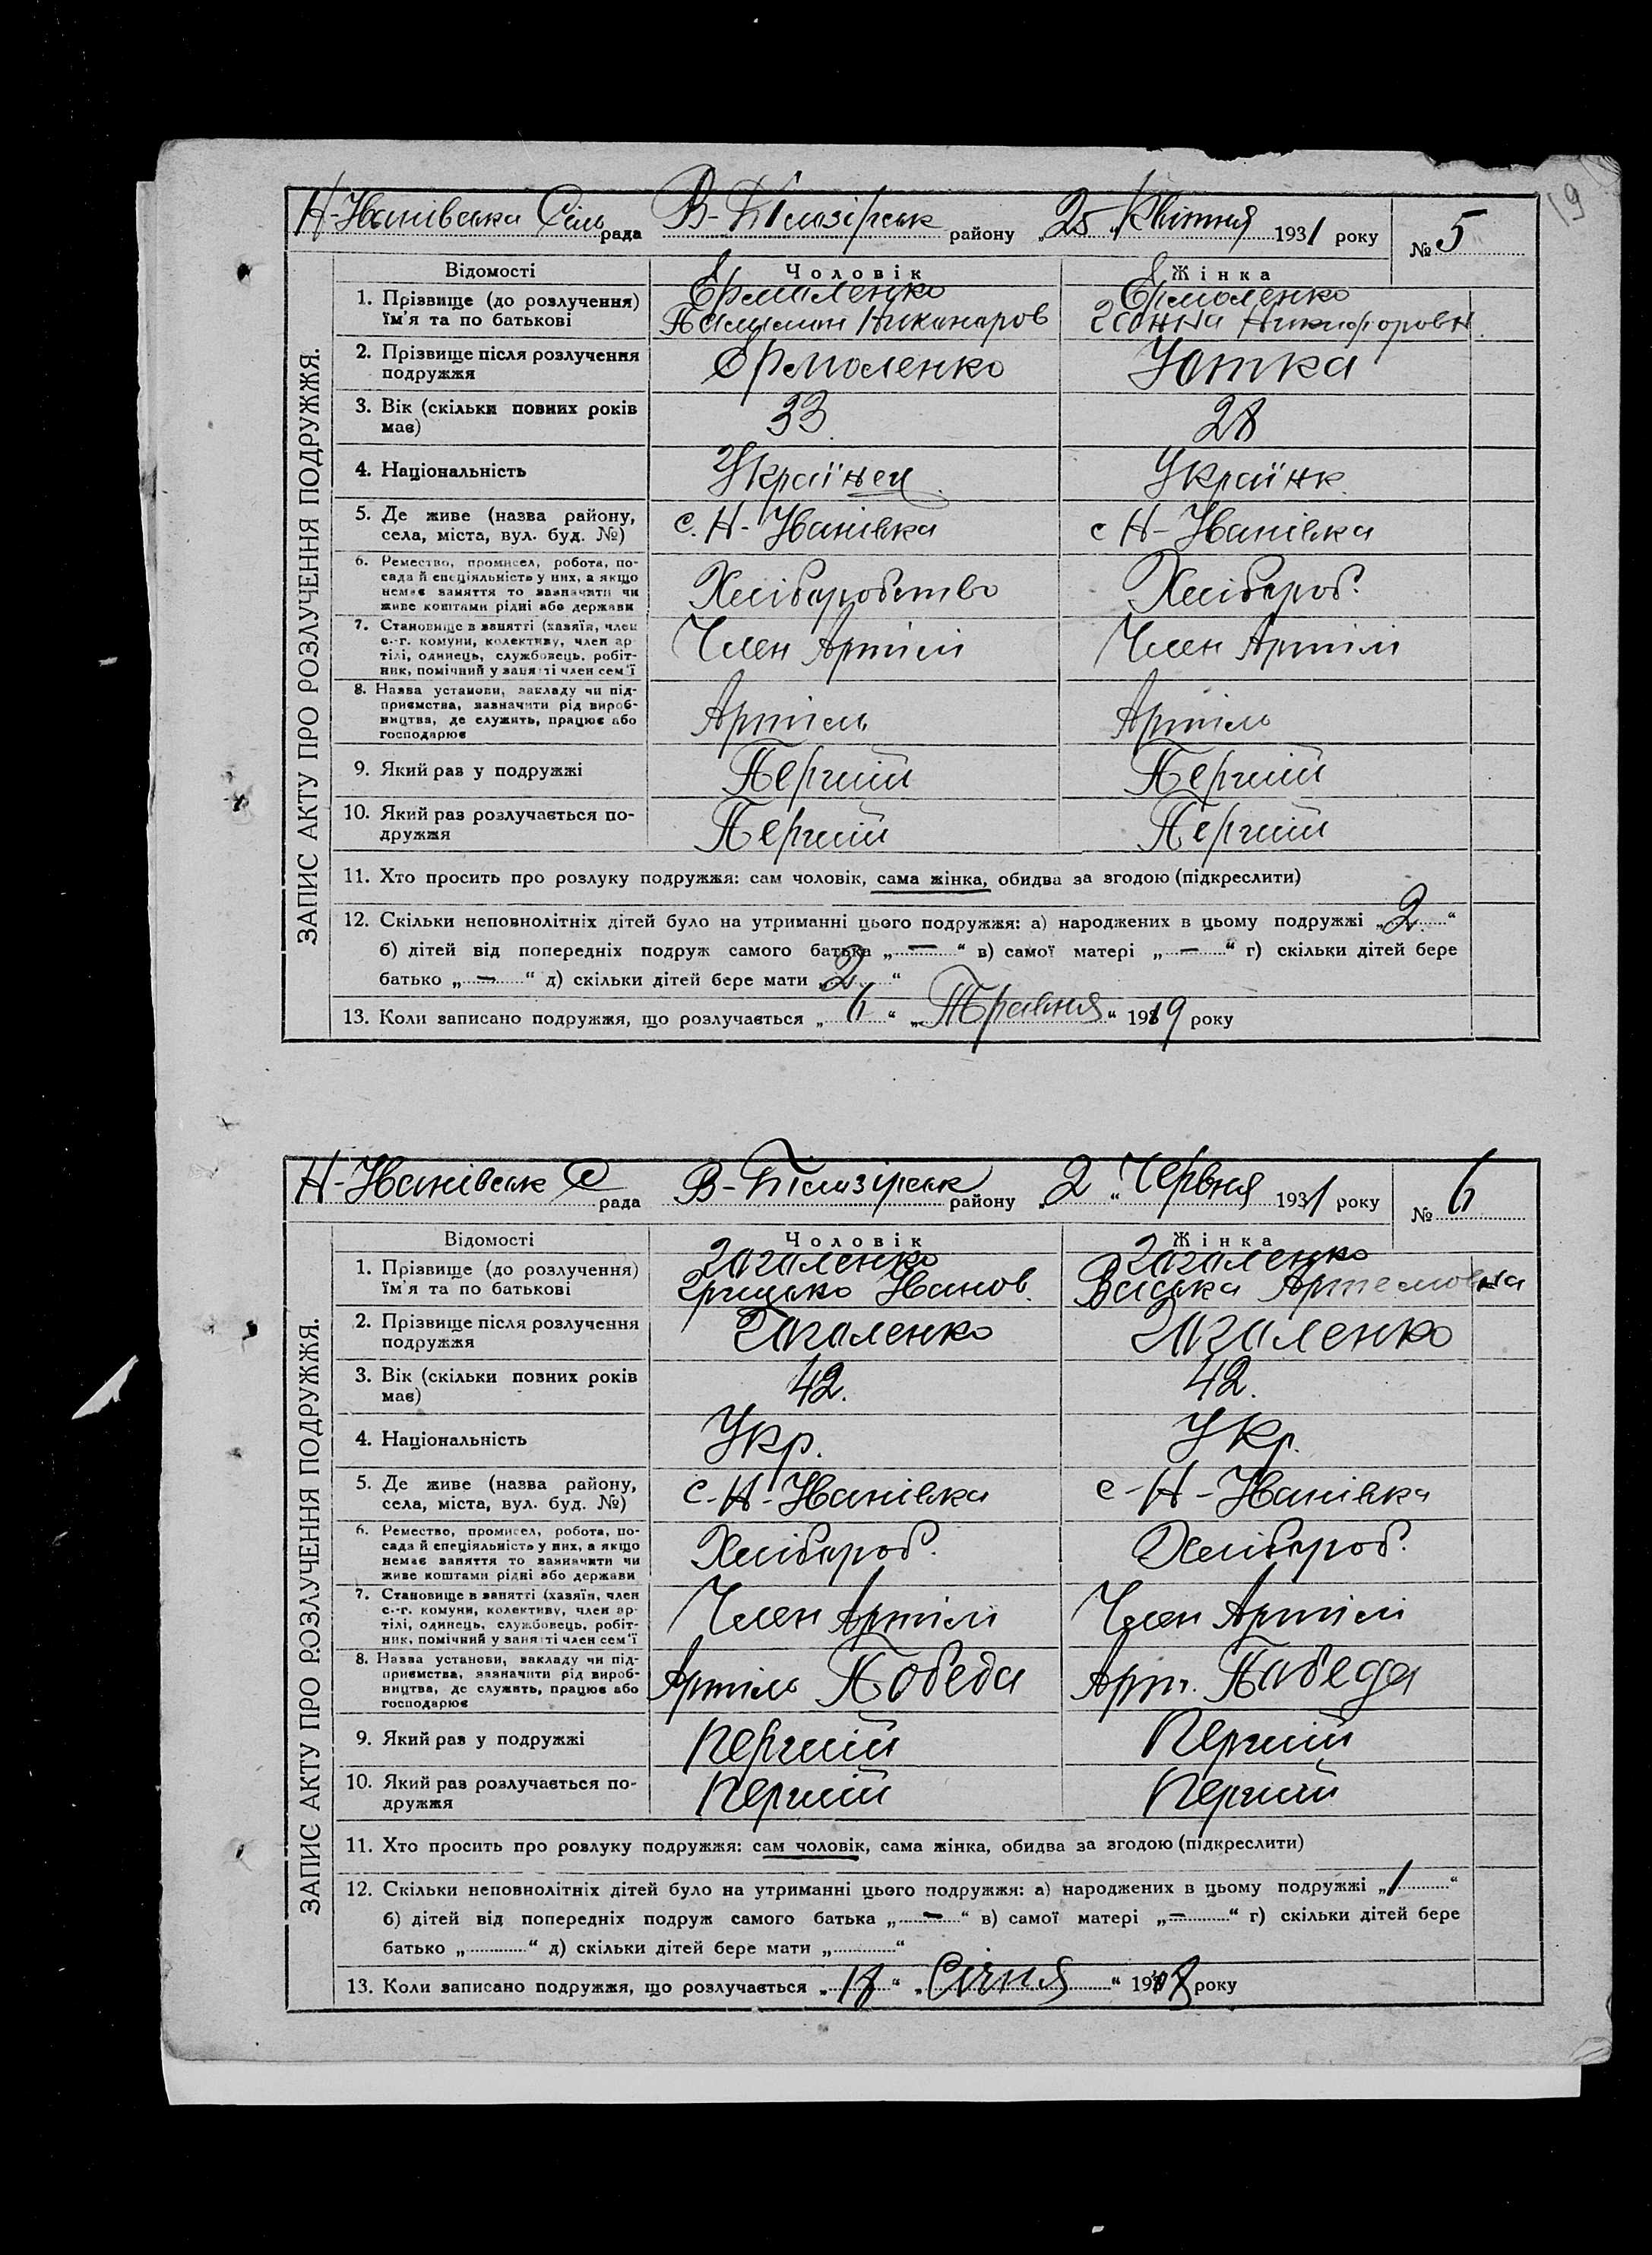 19
Н-Іванівська Сіль рада В-Білозірськ району „25 “ Квітня 1931 року № 5
ЗАПИС АКТУ ПРО РОЗЛУЧЕННЯ ПОДРУЖЖЯ.
Відомості Чоловік Жінка
1. Прізвище (до розлучення) Ермоленко Ермоленко
ім'я та по батькові Никаноров Никифоровн
2. Прізвище після розлучення Ермоленко
подружжя
3. Вік (скільки повних років 33 28
має)
4. Національність Українец Українк.
5. Де живе (назва району, с. Н-Іванівка с Н-Іванівка
села, міста, вул. буд. №)
6. Ремество, промисел, робота, по-
сада й спеціяльність у них, а якщо
немає заняття то зазначити чи Хлібаробство Хлібароб.
живе коштами рідні або держави
7. Становище в занятті (хазяїн, член
с.-г. комуни, колективу, член ар- Член Артілі Член Артілі
тілі, одинець, службовець, робіт-
ник, помічний у занятті член сем'ї
8. Назва установи, закладу чи під-
приємства, зазначити рід вироб-
ництва, де служить, працює або Артіль Артіль
господарює
9. Який раз у подружжі Перший Перший
10. Який раз розлучається по- Перший Перший
дружжя
11. Хто просить про розлуку подружжя: сам чоловік, сама жінка, обидва за згодою (підкреслити)
12. Скільки неповнолітніх дітей було на утриманні цього подружжя: а) народжених в цьому подружжі „2“
б) дітей від попередніх подруж самого батька „—“ в) самої матері „—“ г) скільки дітей бере
батько „—“ д) скільки дітей бере мати „2“
13. Коли записано подружжя, що розлучається „6“ „Травня“ 1919 року
Н-Іванівськ С рада В-Білозірськ району „2 “ Червня 1931 року № 6
ЗАПИС АКТУ ПРО РОЗЛУЧЕННЯ ПОДРУЖЖЯ.
Відомості Чоловік Жінка
1. Прізвище (до розлучення) Загаленко Загаленко
ім'я та по батькові Грицько Іванов. Васька Артемовна
2. Прізвище після розлучення Загаленко Загаленко
подружжя
3. Вік (скільки повних років 42. 42.
має)
4. Національність Укр. Укр.
5. Де живе (назва району, с-Н-Іванівка с-Н-Іванівка
села, міста, вул. буд. №)
6. Ремество, промисел, робота, по-
сада й спеціяльність у них, а якщо
немає заняття то зазначити чи Хлібароб. Хлібароб.
живе коштами рідні або держави
7. Становище в занятті (хазяїн, член
с.-г. комуни, колективу, член ар- Член Артілі Член Артілі
тілі, одинець, службовець, робіт-
ник, помічний у занятті член сем'ї
8. Назва установи, закладу чи під-
приємства, зазначити рід вироб- Артіль Победа Арт. Победа
ництва, де служить, працює або
господарює
9. Який раз у подружжі Перший Перший
10. Який раз розлучається по- Перший Перший
дружжя
11. Хто просить про розлуку подружжя: сам чоловік, сама жінка, обидва за згодою (підкреслити)
12. Скільки неповнолітніх дітей було на утриманні цього подружжя: а) народжених в цьому подружжі „1“
б) дітей від попередніх подруж самого батька „—“ в) самої матері „—“ г) скільки дітей бере
батько „ “ д) скільки дітей бере мати „ “
13. Коли записано подружжя, що розлучається „18“ „Січня“ року